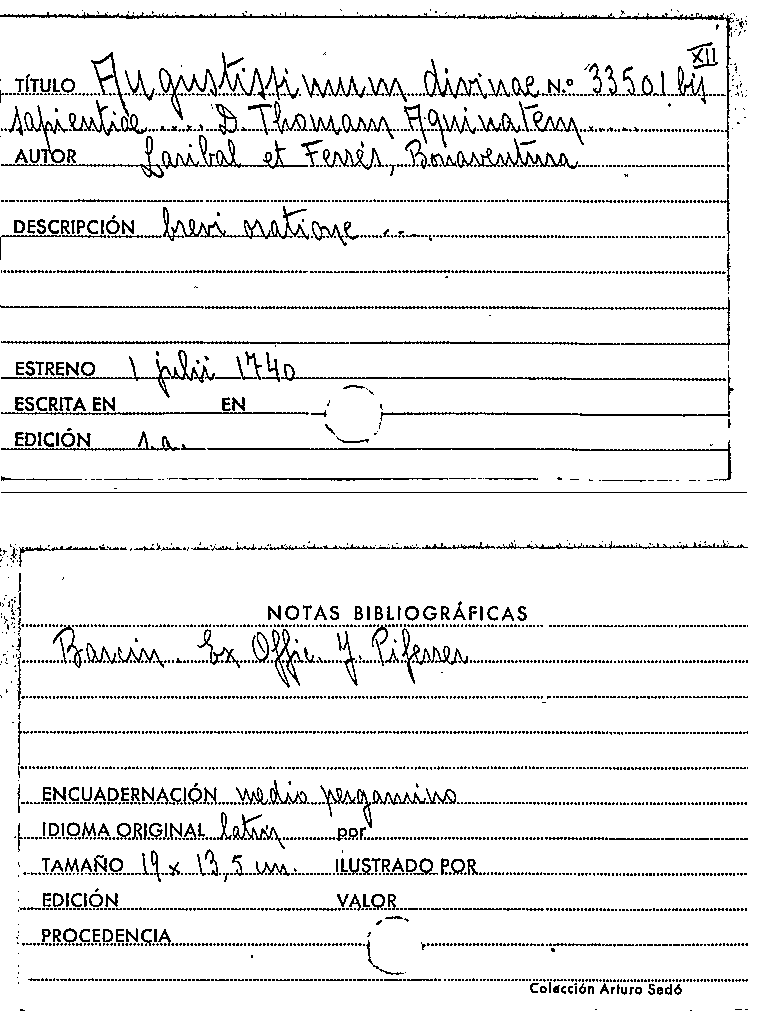 XII
TÍTULO Augustissimum divinae N.º 33501 bis
sapientiae .... D. Thomam Aquinatem.....
AUTOR Laribal et Ferrés, Bonaventura
DESCRIPCIÓN brevi oratione ....
ESTRENO 1 julii 1740
ESCRITA EN EN
EDICIÓN s.a.
NOTAS BIBLIOGRÁFICAS
Barcin. Ex Offic. Y. Piferrer
ENCUADERNACIÓN medio pergamino
IDIOMA ORIGINAL latín por
TAMAÑO 19 x 13,5 cm. ILUSTRADO POR
EDICIÓN VALOR
PROCEDENCIA
Colección Arturo Sedó